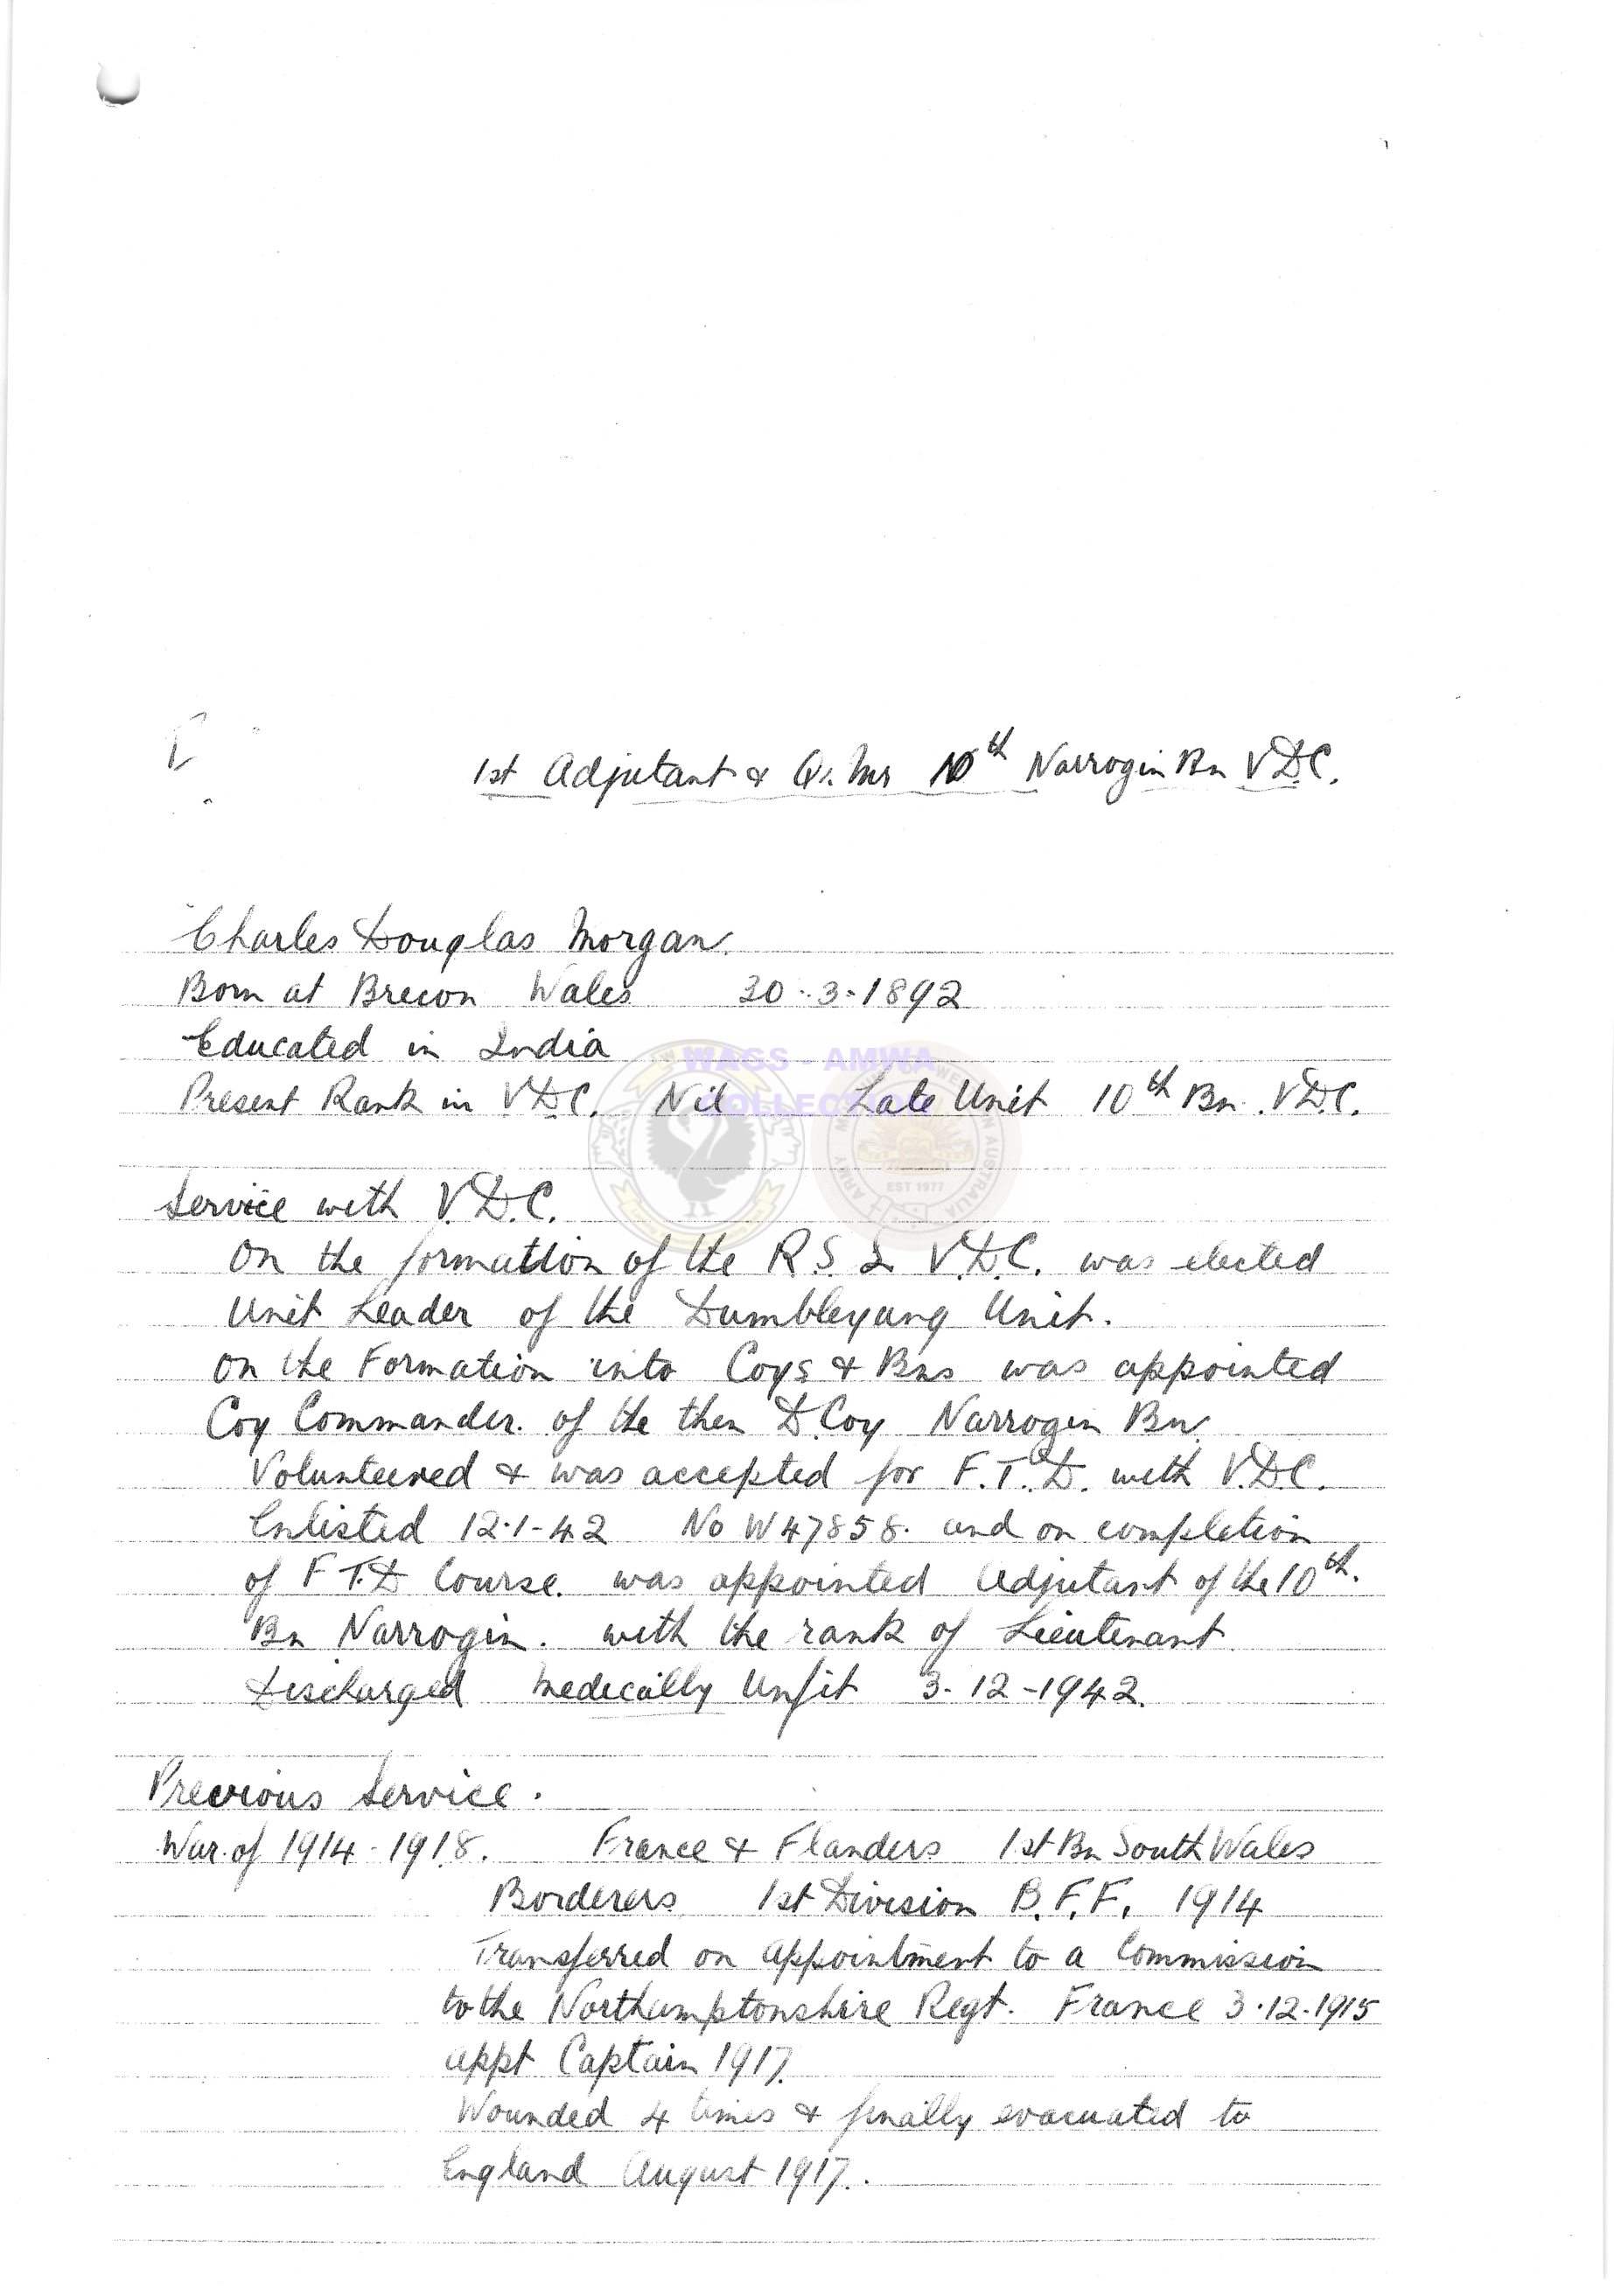 1st Adjutant & Qr. Mr 10th Narrogin Bn V.D.C.
Charles Douglas Morgan.
Born at Brecon Wales 30.3.1892
Educated in India
WAGS - AMWA
COLLECTION
Present Rank in V.D.C. Nil Late Unit 10th Bn. V.D.C.
EST 1977
Service with V.D.C.
On the formation of the R.S.L V.D.C. was elected
Unit Leader of the Dumbleyung Unit.
On the Formation into Coys & Bns was appointed
Coy Commander. of the then D.Coy Narrogin Bn.
Volunteered & was accepted for F.T.D. with V.D.C.
Enlisted 12.1-42 No W47858. and on completion
of F.T.D Course. was appointed Adjutant of the 10th.
Bn Narrogin. with the rank of Lieutenant.
Discharged Medically Unfit 3-12-1942.
Previous Service.
War of 1914-1918. France & Flanders 1st Bn South Wales
Borderers 1st Division B.E.F. 1914
Transferred on appointment to a Commission
to the Northamptonshire Regt. France 3.12.1915
appt Captain 1917.
Wounded 4 times & finally evacuated to
England August 1917.